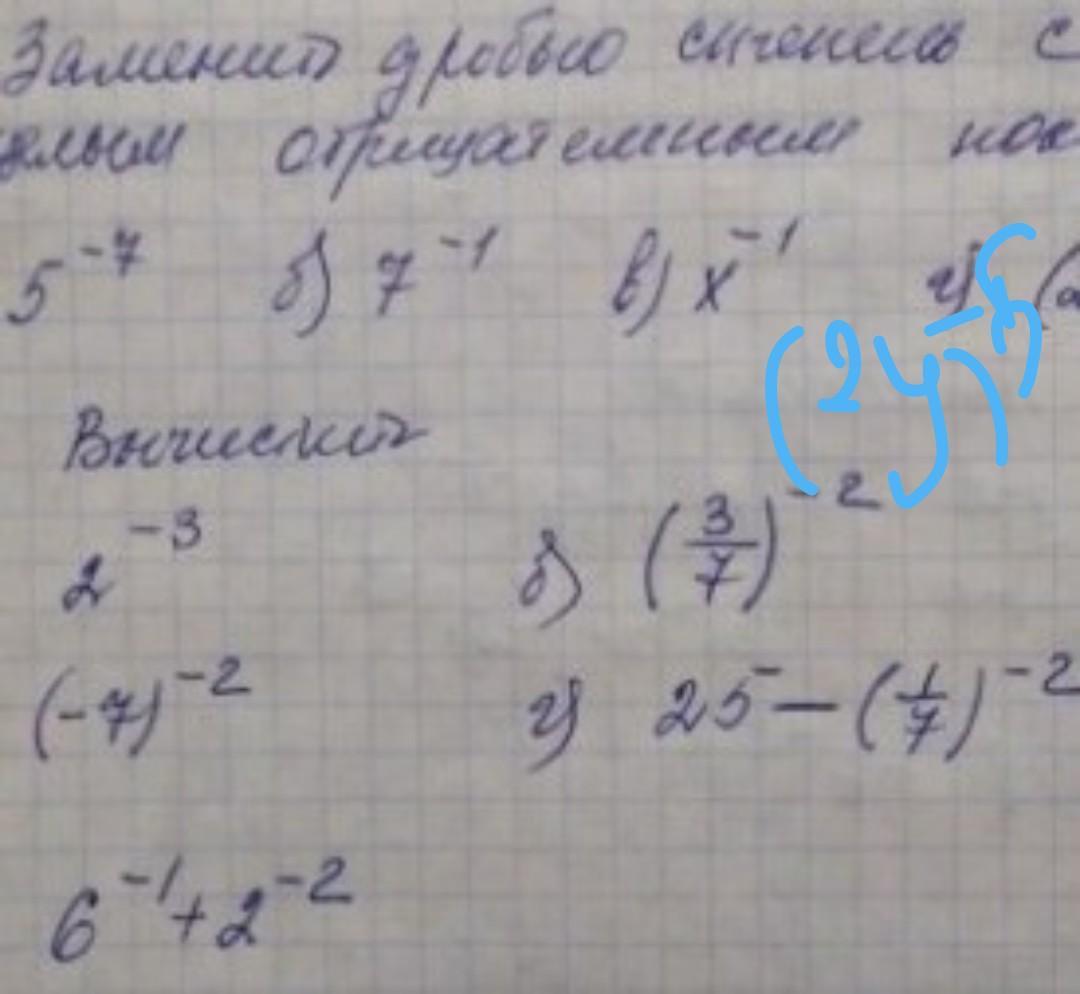 Заменить дробью степень с
целым отрицательным пок
5⁻⁷ б) 7⁻¹ в) x⁻¹ г) (a
(2y)⁻⁵
Вычислить
2⁻³ б) (3/7)⁻²
(-7)⁻² г) 25⁻ — (1/7)⁻²
6⁻¹+2⁻²